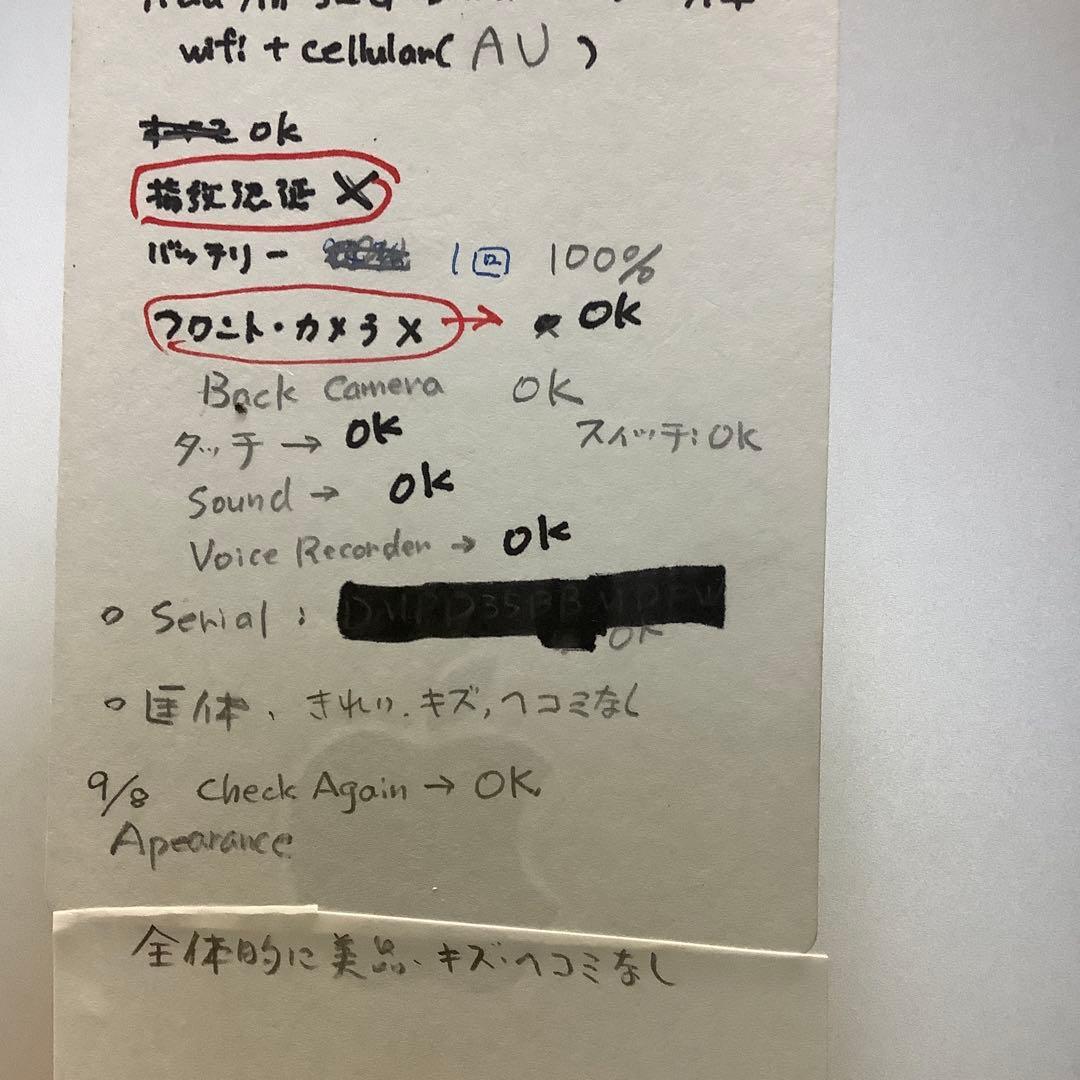 wifi + cellular( AU )
ok
指紋認証 X
バッテリー 1回 100%
フロント・カメラ X → OK
Back Camera OK
タッチ → OK スイッチ: OK
Sound → OK
Voice Recorder → OK
○ Serial : OK
○ 匡体、きれい. キズ, ヘコミなし
9/8 Check Again → OK
Apearance
全体的に美品. キズ・ヘコミなし